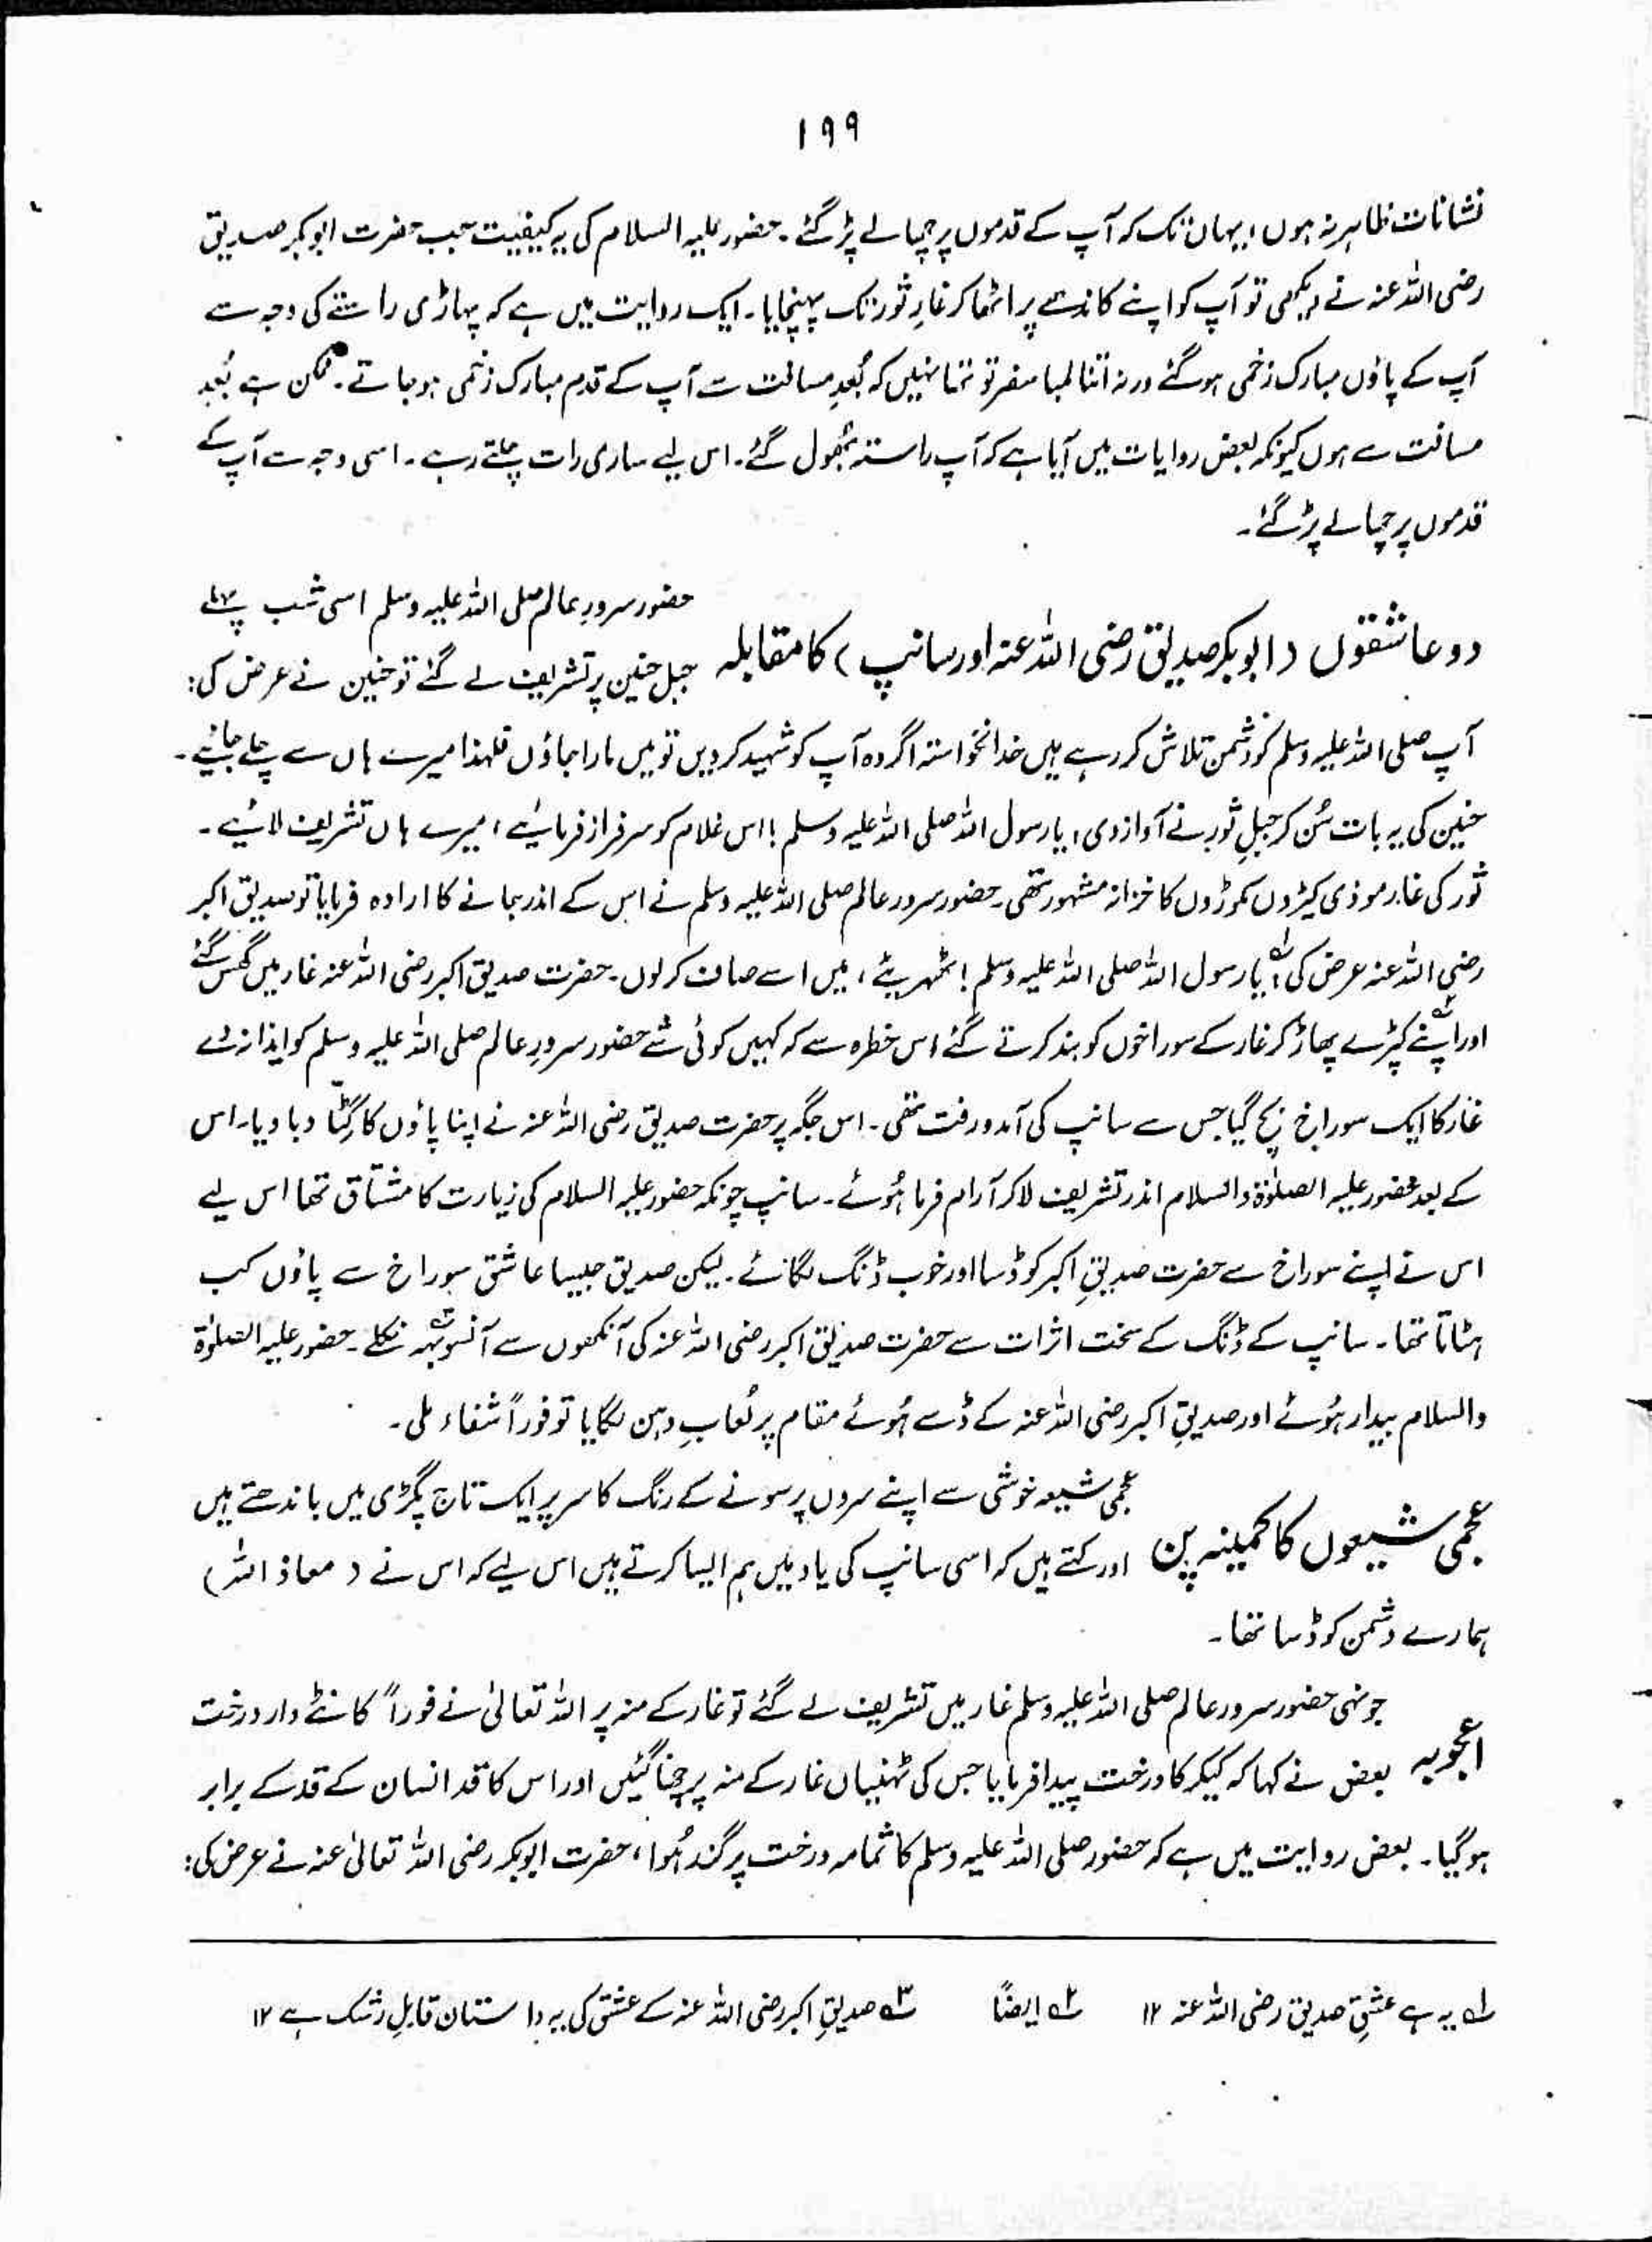 ۱۹۹
نشانات ظاہر نہ ہوں، یہاں تک کہ آپ کے قدموں پر چھالے پڑ گئے۔ حضور علیہ السلام کی یہ کیفیت جب حضرت ابوبکر صدیق
رضی اللہ عنہ نے دیکھی تو آپ کو اپنے کاندھے پر اٹھا کر غارِ ثور تک پہنچایا۔ ایک روایت میں ہے کہ پہاڑی راستے کی وجہ سے
آپ کے پاؤں مبارک زخمی ہوگئے ورنہ اتنا لمبا سفر تو تھا نہیں کہ بُعدِ مسافت سے آپ کے قدم مبارک زخمی ہو جاتے۔ ممکن ہے بُعدِ
مسافت سے ہوں کیونکہ بعض روایات میں آیا ہے کہ آپ راستہ بُھول گئے۔ اس لیے ساری رات چلتے رہے۔ اسی وجہ سے آپ کے
قدموں پر چھالے پڑ گئے۔
دو عاشقوں (ابوبکر صدیق رضی اللہ عنہ اور سانپ) کا مقابلہ حضور سرورِ عالم صلی اللہ علیہ وسلم اسی شب پہلے
جبل حنین پر تشریف لے گئے تو حنین نے عرض کی:
آپ صلی اللہ علیہ وسلم کو دشمن تلاش کر رہے ہیں خدانخواستہ اگر وہ آپ کو شہید کر دیں تو میں مارا جاؤں فلہذا میرے ہاں سے چلے جائیے۔
حنین کی یہ بات سُن کر جبلِ ثور نے آواز دی، یا رسول اللہ صلی اللہ علیہ وسلم! اس غلام کو سرفراز فرمائیے، میرے ہاں تشریف لائیے۔
ثور کی غار موذی کیڑوں مکوڑوں کا خزانہ مشہور تھی۔ حضور سرور عالم صلی اللہ علیہ وسلم نے اس کے اندر جانے کا ارادہ فرمایا تو صدیق اکبر
رضی اللہ عنہ عرض کی؂۱ یا رسول اللہ صلی اللہ علیہ وسلم! ٹھہریئے، میں اسے صاف کر لوں۔ حضرت صدیق اکبر رضی اللہ عنہ غار میں گھس گئے
اور؂۲ اپنے کپڑے پھاڑ کر غار کے سوراخوں کو بند کرتے گئے اس خطرہ سے کہ کہیں کوئی شے حضور سرورِ عالم صلی اللہ علیہ وسلم کو ایذا نہ دے
غار کا ایک سوراخ بچ گیا جس سے سانپ کی آمد و رفت تھی۔ اس جگہ پر حضرت صدیق رضی اللہ عنہ نے اپنا پاؤں کا گِٹّا دبا دیا۔ اس
کے بعد حضور علیہ الصلوٰۃ والسلام اندر تشریف لا کر آرام فرما ہُوئے۔ سانپ چونکہ حضور علیہ السلام کی زیارت کا مشتاق تھا اس لیے
اس نے اپنے سوراخ سے حضرت صدیقِ اکبر کو ڈسا اور خوب ڈنگ لگائے۔ لیکن صدیق جیسا عاشق سوراخ سے پاؤں کب
ہٹاتا تھا۔ سانپ کے ڈنگ کے سخت اثرات سے حضرت صدیق اکبر رضی اللہ عنہ کی آنکھوں سے آنسو؂۳ بہہ نکلے۔ حضور علیہ الصلوٰۃ
والسلام بیدار ہُوئے اور صدیقِ اکبر رضی اللہ عنہ کے ڈسے ہُوئے مقام پر لُعابِ دہن لگایا تو فوراً شفاء ملی۔
عجمی شیعوں کا کمینہ پن عجمی شیعہ خوشی سے اپنے سروں پر سونے کے رنگ کا سر پر ایک تاج پگڑی میں باندھتے ہیں
اور کہتے ہیں کہ اسی سانپ کی یاد میں ہم ایسا کرتے ہیں اس لیے کہ اس نے (معاذ اللہ)
ہمارے دشمن کو ڈسا تھا۔
اعجوبہ جونہی حضور سرور عالم صلی اللہ علیہ وسلم غار میں تشریف لے گئے تو غار کے منہ پر اللہ تعالیٰ نے فوراً کانٹے دار درخت
بعض نے کہا کہ کیکر کا درخت پیدا فرمایا جس کی ٹہنیاں غار کے منہ پر چھا گئیں اور اس کا قد انسان کے قد کے برابر
ہوگیا۔ بعض روایت میں ہے کہ حضور صلی اللہ علیہ وسلم کا ثمامہ درخت پر گذر ہُوا، حضرت ابوبکر رضی اللہ تعالیٰ عنہ نے عرض کی:
؂۱ یہ ہے عشقِ صدیق رضی اللہ عنہ ۱۲ ؂۲ ایضاً ؂۳ صدیقِ اکبر رضی اللہ عنہ کے عشق کی یہ داستان قابلِ رشک ہے ۱۲